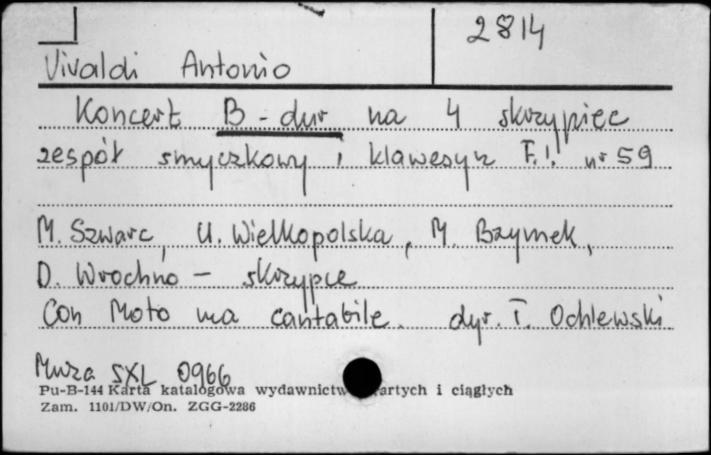 2814
Vivaldi Antonio
Koncert B-dur na 4 skrzypiec
zespół smyczkowy i klawesyn F.I. nr 59
M. Szwarc, U. Wielkopolska, M. Bzymek,
D. Wrochno - skrzypce
Con Moto ma cantabile. dyr. T. Ochlewski
Muza SXL 0966
Pu-B-144 Karta katalogowa wydawnictw artych i ciągłych
Zam. 1101/DW/On. ZGG-2286